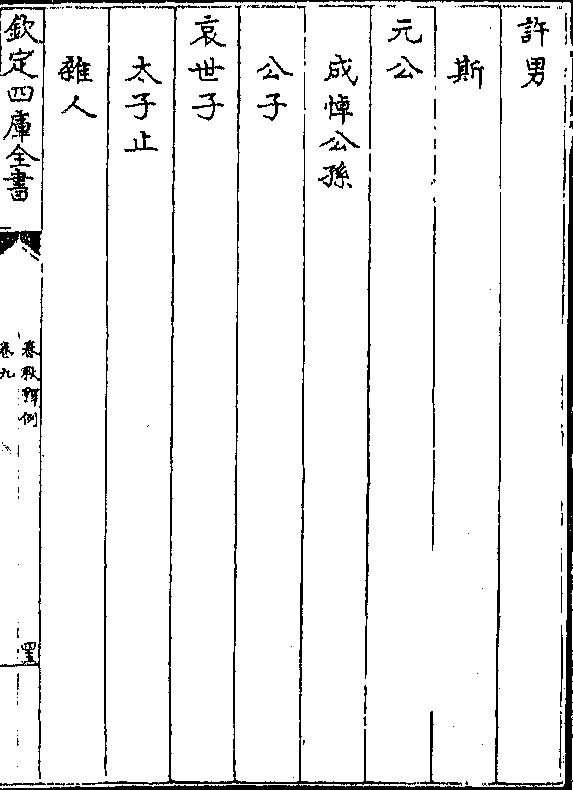 許男
斯
元公
成悼公孫
公子
哀世子
太子止
雜人
欽定四庫全書
春秋釋例
卷九